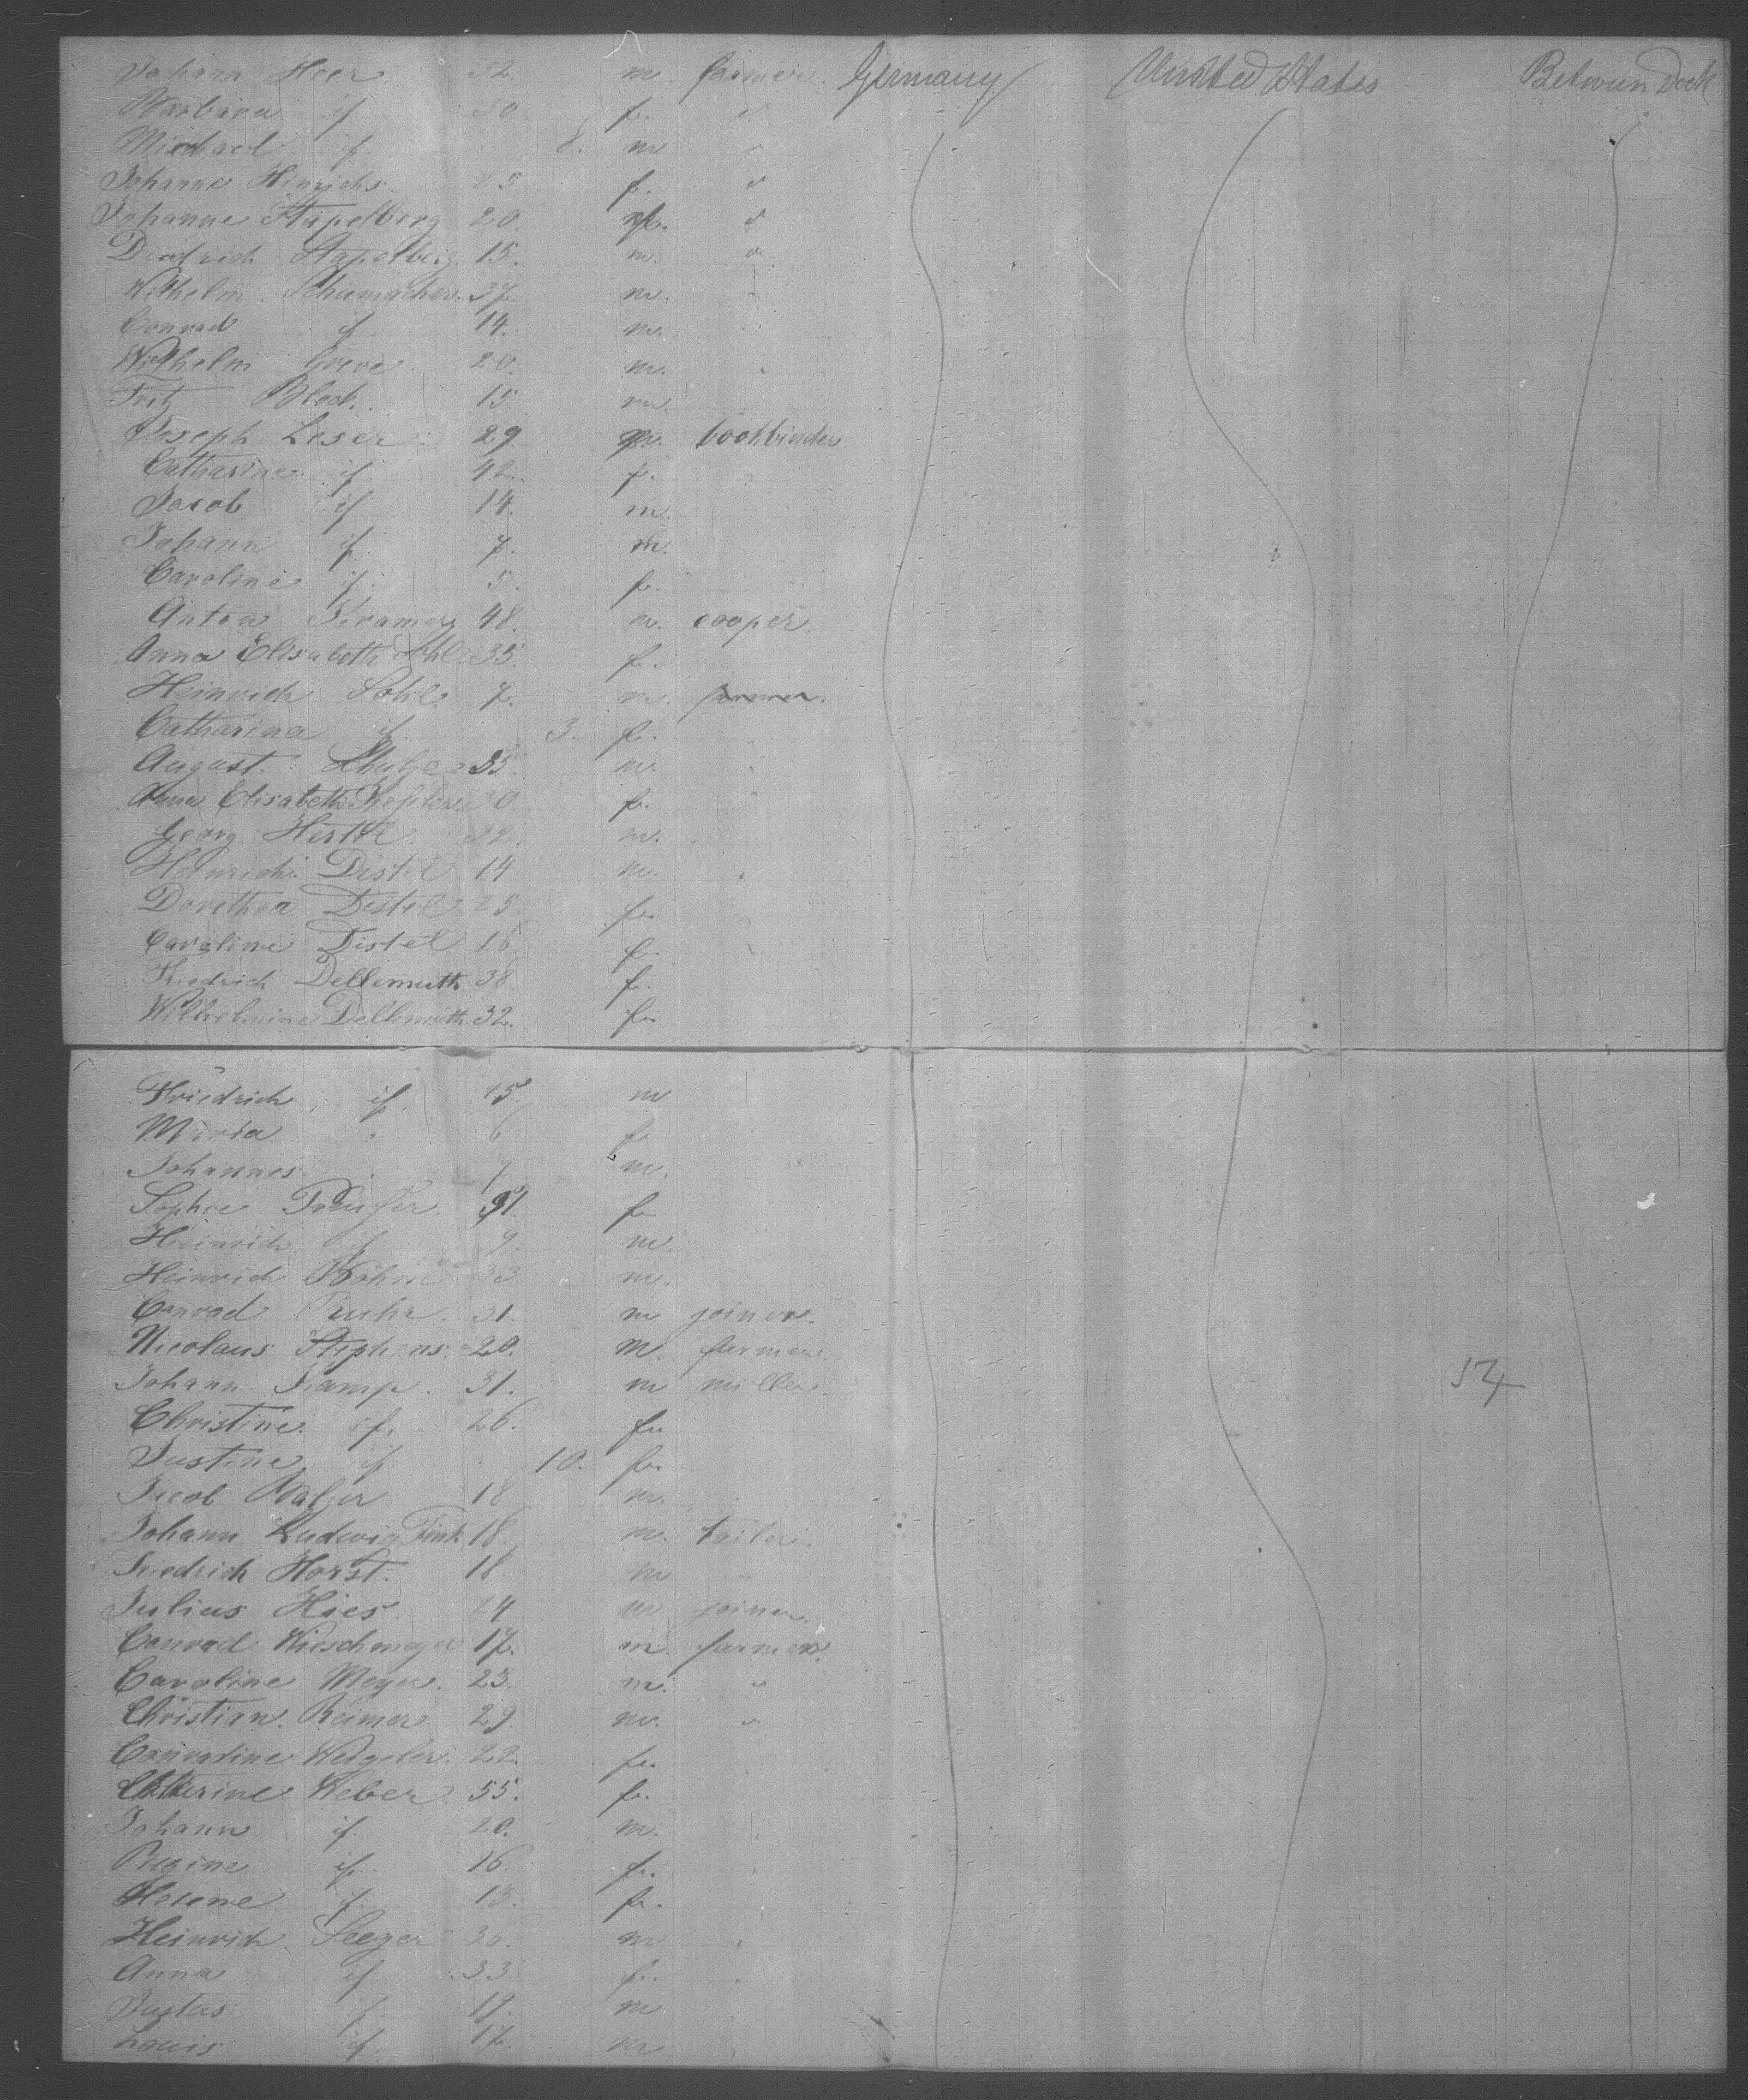 Johann Heer 32. m. farmer. Germany United States Between Deck
Barbara if 30 f. "
Michael if 8. m "
Johanne Hinrichs 25 f. "
Johanne Stapelberg 20. f. "
Diedrich Stapelberg. 15. m. "
Wilhelm Schumacher. 37. m. "
Conrad if 14. m.
Wilhelm Greve. 20. m. "
Fritz Block. 15 m.
Joseph Leser. 29. m. bookbinder
Catharine if 42. f.
Jacob if 14. m.
Johann if 7. m.
Caroline if 5. f.
Anton 48. m. cooper.
Anna Elisabeth 35. f.
Heinrich 7. m. farmer.
Catharina if 3. f.
August Schulze 35. m. "
Anna Elisabeth 30 f. "
Georg Hertel 22. m.
Heinrich Distel 14 m. "
Dorethea Distel 25 f.
Caroline Distel 16 f. "
Friedrich Dellemuth 38 f.
Wilhelmine Dellemuth. 32. f.
Friedrich if. 15. m
Maria " 6 f
Johannes 7 m.
Sophie 51 f
Heinrich if 9. m.
Heinrich Böhm 33 m.
Conrad 31. m joiner.
Nicolaus Stephens. 20. m. farmer.
Johann Kamp. 31. m miller.
Christine. if. 26. f.
Justine if 10. f.
Jacob 18 m.
Johann Ludwig Fink 18. m. tailor.
Friedrich Horst. 18. m "
Julius Hies. 24 m joiner.
Conrad Wieschmeyer 17. m farmer.
Caroline Meyer. 23. m. "
Christian. Reimer 29. m. "
Conradine 22. f.
Catherine Weber. 55. f.
Johann if. 20. m.
Regine if. 16. f.
Helene if. 13. f.
Heinrich Seeger 36. m
Anna if 33. f.
Justus if 19. m
Louis if. 17. m